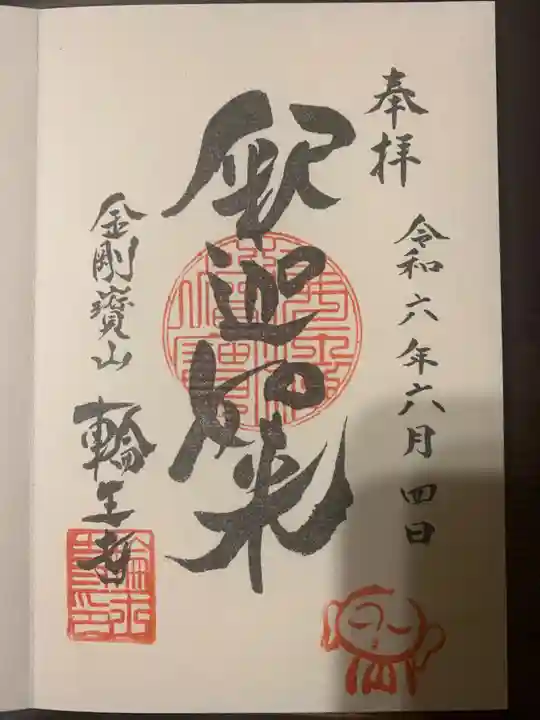 奉拝
令和六年六月四日
釈迦如来
金剛寶山
輪王寺